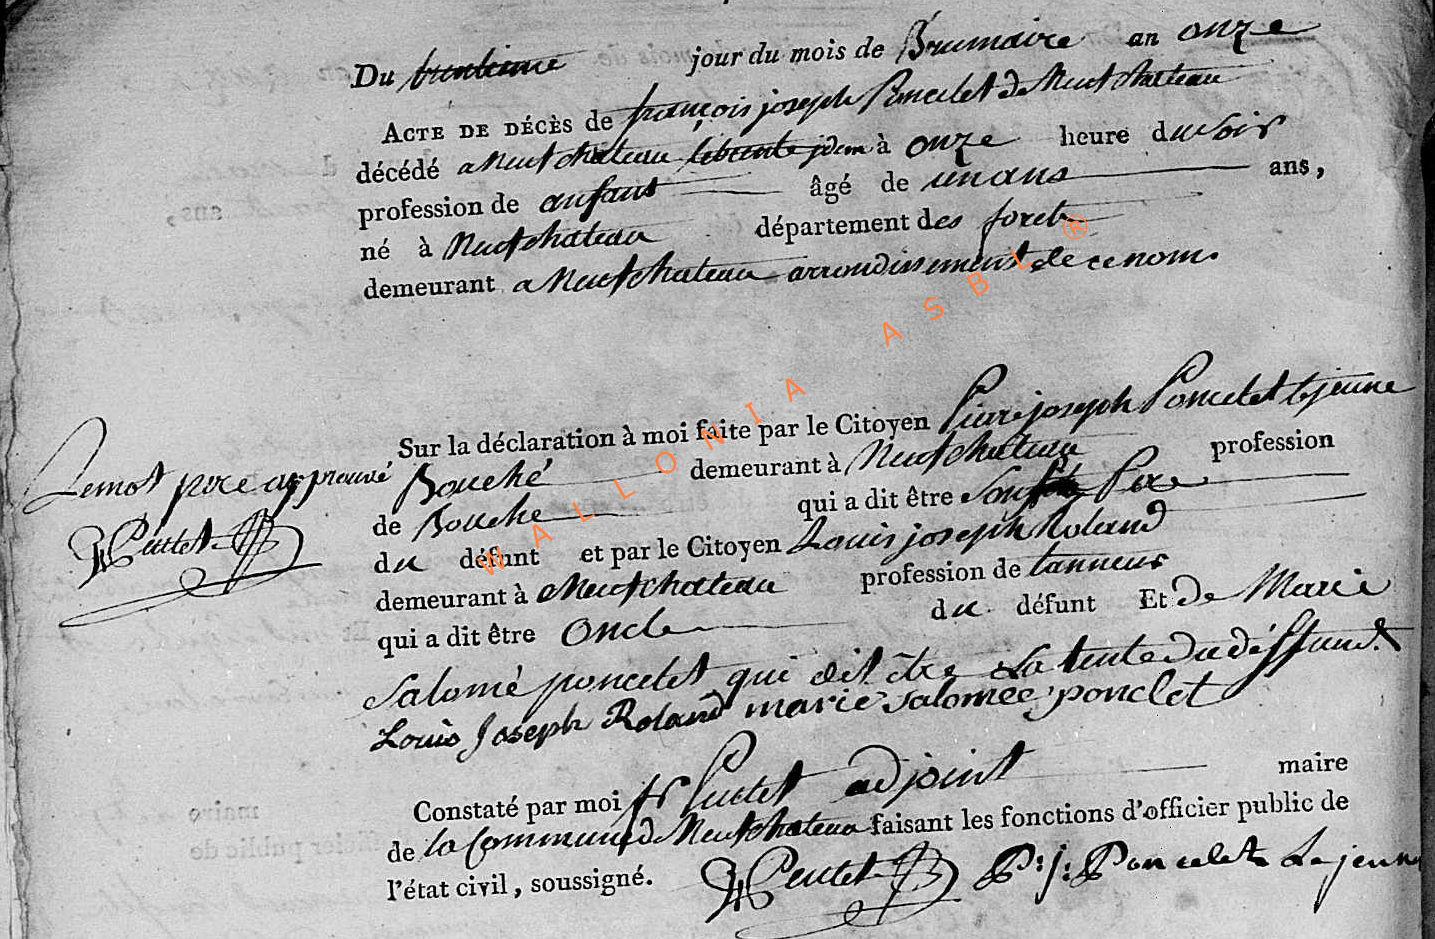 Du trentieme jour du mois de Brumaire an onze
ACTE DE DÉCÈS de françois joseph Poncelet de Neufchateau
décédé a Neufchateau le trente jdem à onze heure du soir
profession de anfant âgé de un ans ans,
né à Neufchateau département des foret
demeurant a Neufchateau arrondissement de ce nom.
Sur la déclaration à moi faite par le Citoyen Pierre joseph Poncelet lejeune
Bouché demeurant à Neufchateau profession
de Bouche qui a dit être Son Pere
du défunt et par le Citoyen Louis joseph Roland
demeurant à Neufchateau profession de tanneur
qui a dit être Oncle du défunt Et de Marie
Salomé poncelet qui dit être La tente du déffunt
Louis Joseph Roland marie Salomée ponclet
Lemot pere approuvé
Constaté par moi adjoint maire
de la Commune de Neufchateau faisant les fonctions d'officier public de
l'état civil, soussigné. P: j: Poncelet Le jeune
WALLONIA ASBL ®